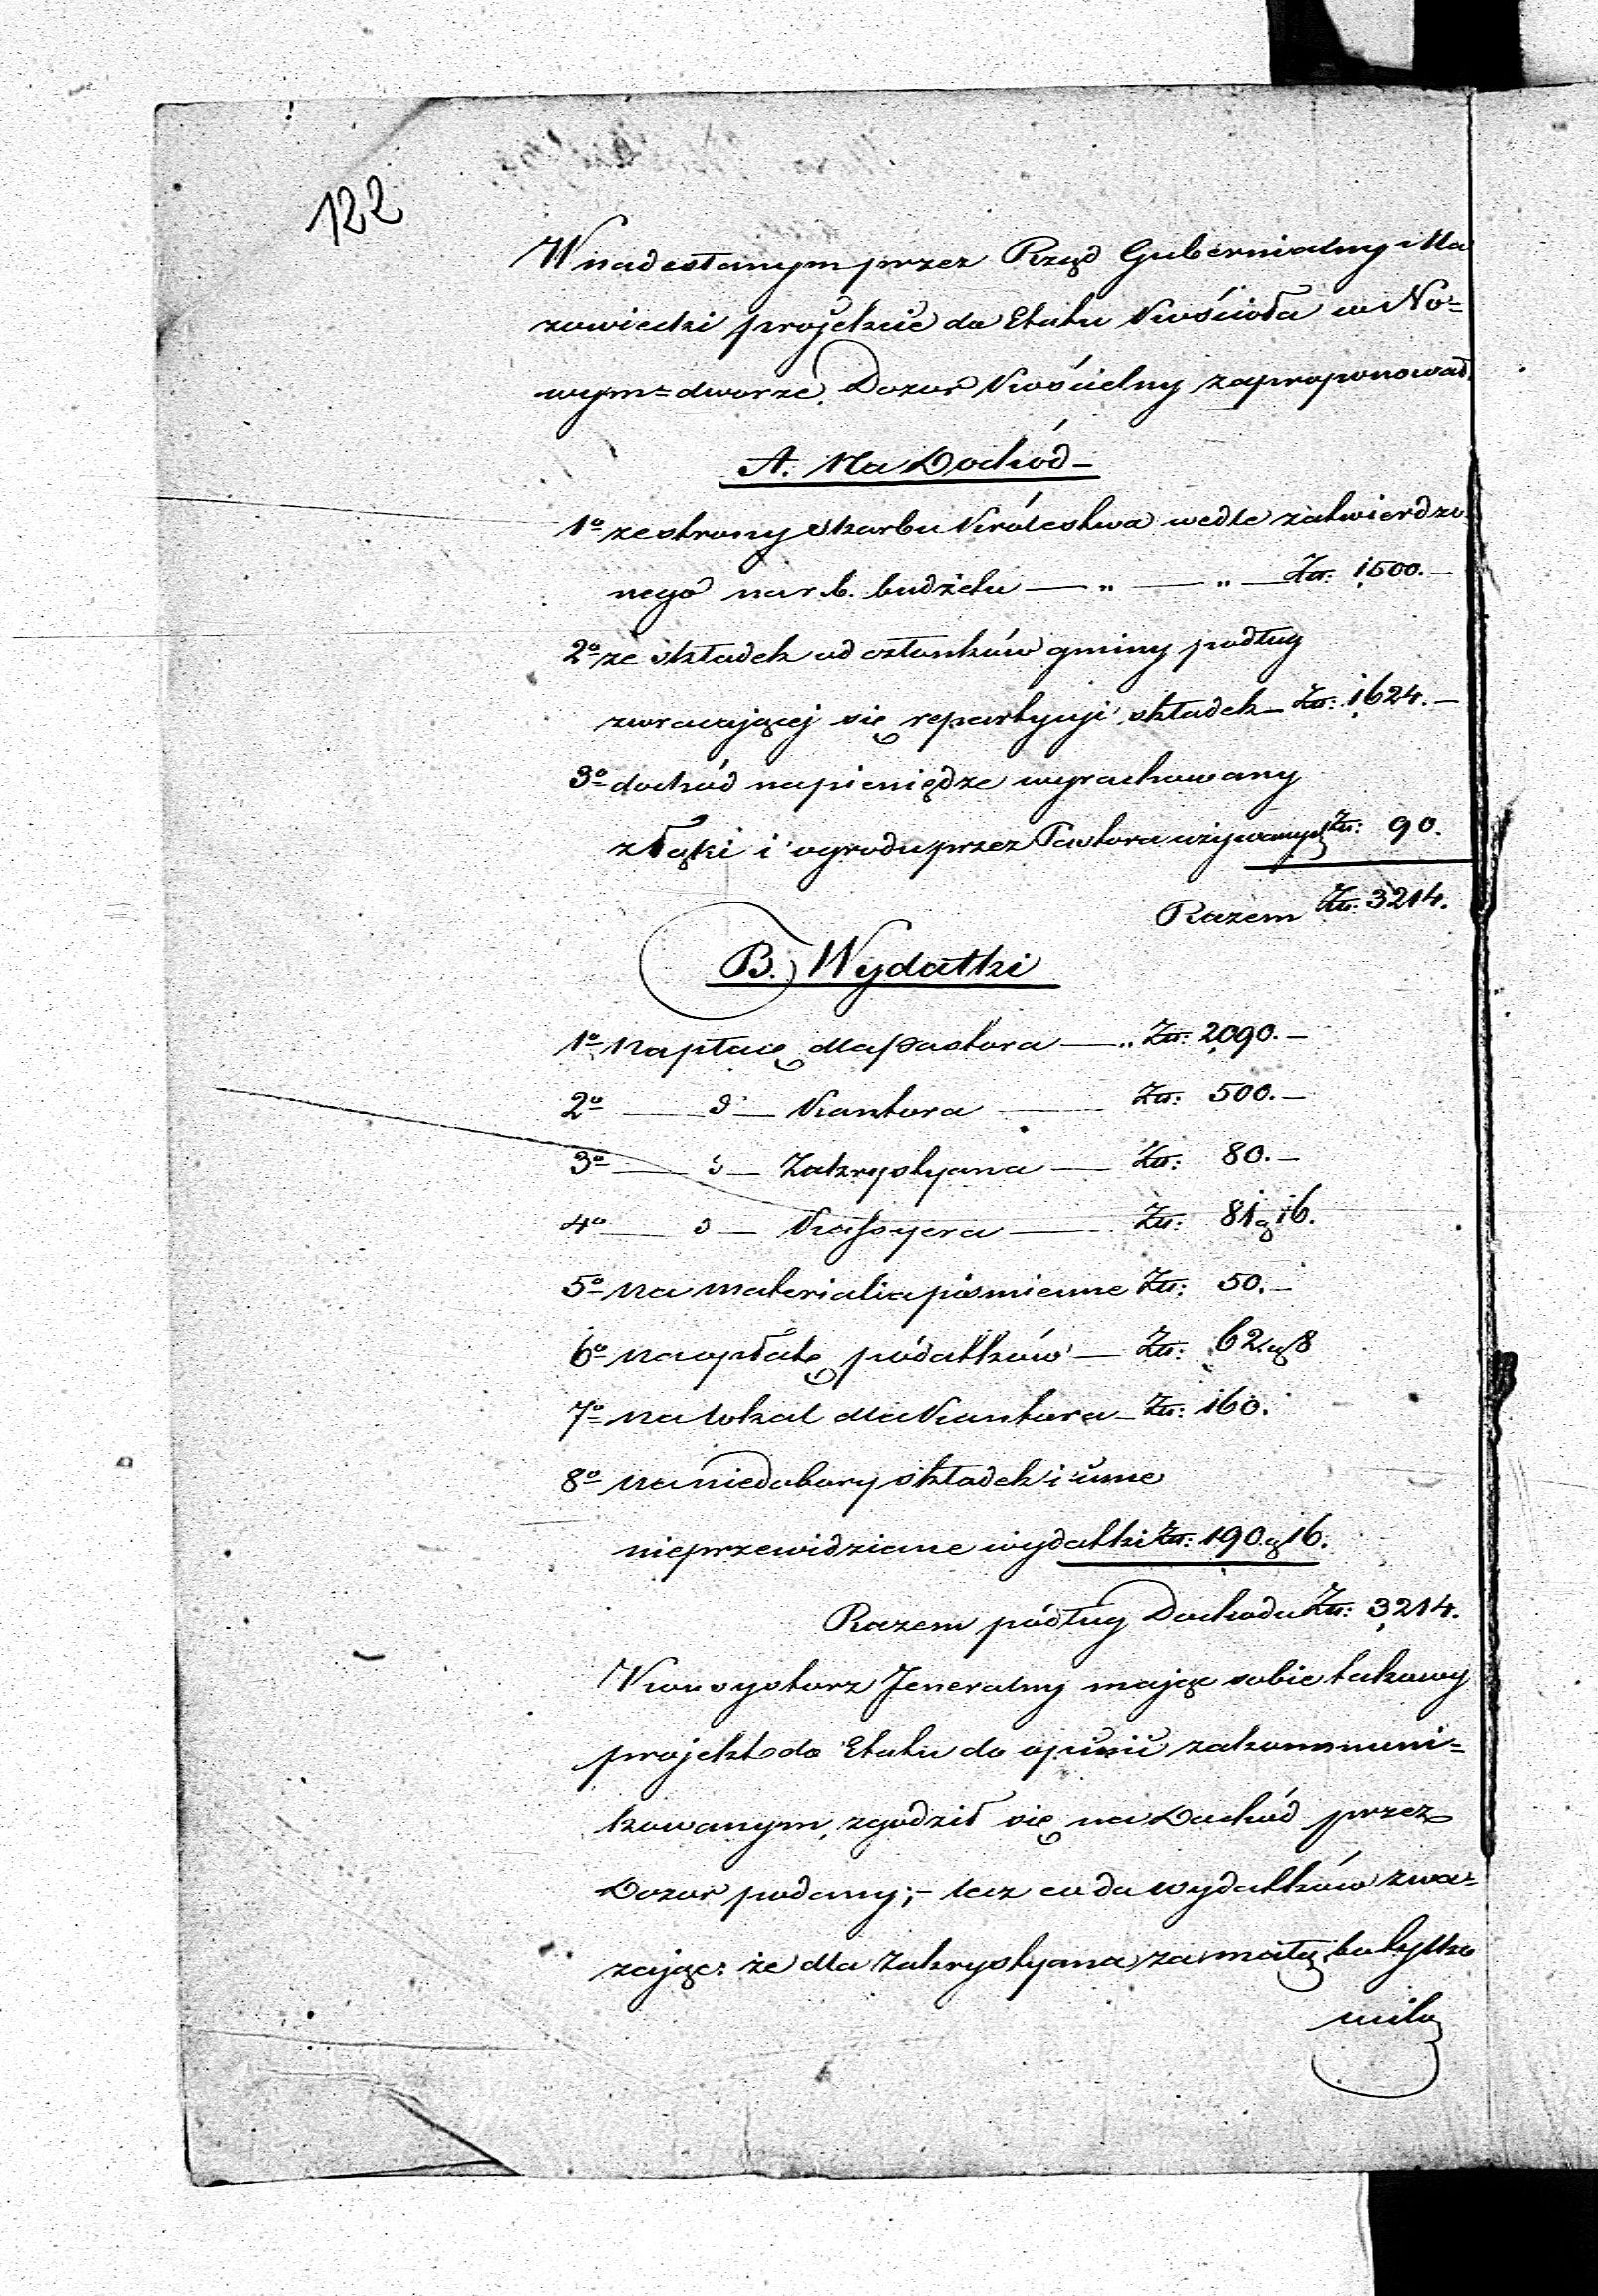 122
W nadesłanym przez Rząd Gubernialny Ma
zowiecki projekcie do Etatu Kościoła w No=
wym=dworze Dozór Kościelny zaproponował.
A. Na Dochód –
1º ze strony Skarbu Królestwa wedle zatwierdzo
nego na r. b. budżetu — „ — „ — Zł: 1500. –
2º ze składek od członków gminy podług
zwracającej się repartycyi składek – Zł: 1624. –
3º dochód na pieniędze wyrachowany
z łąki i ogrodu przez Pastora używanych Zł: 90.
Razem Zł: 3214.
B. Wydatki
1º Na płacę dla Pastora — „ Zł: 2090. –
2º — d — Kantora — Zł: 500. –
3º — d — Zakrystyana — Zł: 80. –
4º — d — Kassyera — Zł: 81 g 16.
5º Na materialia piśmienne Zł: 50. –
6º na opłatę podatków – Zł: 62 g 8
7º na lokal dla Kantora – Zł: 160.
8º na niedobory składek i inne
nieprzewidziane wydatki Zł: 190 g 16.
Razem podług Dochodu Zł: 3214.
Konsystorz Jeneralny mając sobie takowy
projekt do Etatu do opinii zakommuni=
kowanym, zgodził się na Dochód przez
Dozór podany; – lecz co do wydatków zwa=
zając: że dla Zakrystyana za małą bo tylko